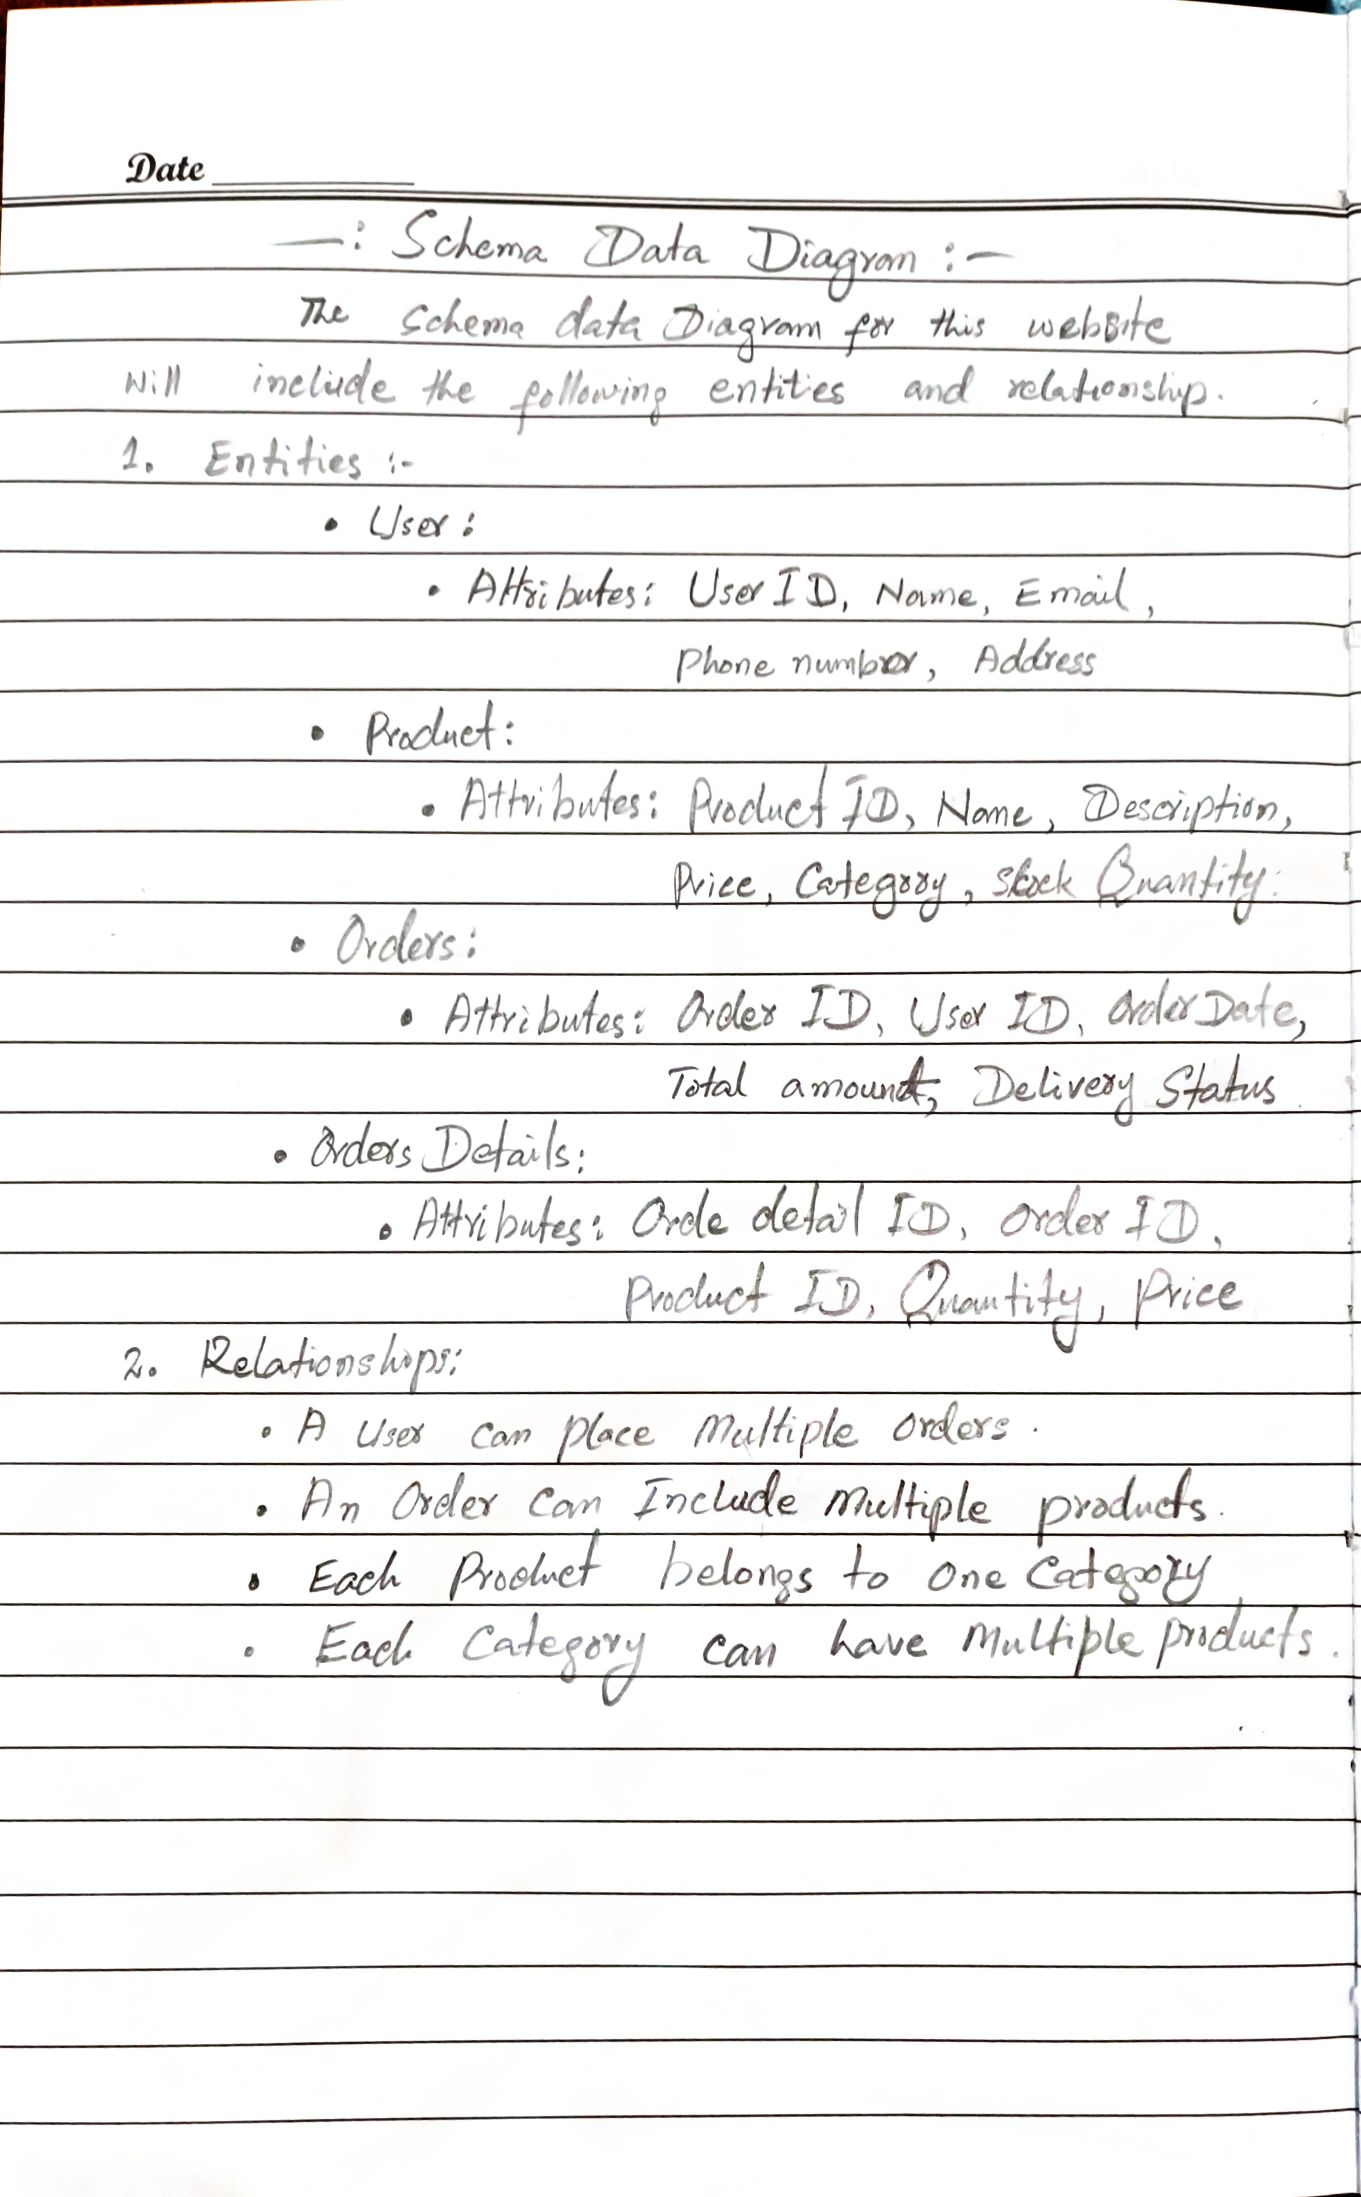 Date
—: Schema Data Diagram :—
The Schema data Diagram for this website
will include the following entities and relationship.
1. Entities :-
• User :
• Attributes: User ID, Name, Email,
Phone number, Address
• Product:
• Attributes: Product ID, Name, Description,
Price, Category, Stock Quantity.
• Orders:
• Attributes: Order ID, User ID, Order Date,
Total amount, Delivery Status
• Orders Details:
• Attributes: Orde detail ID, Order ID,
Product ID, Quantity, Price
2. Relationships:
• A User can place Multiple orders.
• An Order Can Include Multiple products.
• Each Product belongs to one Category
• Each Category can have Multiple products.